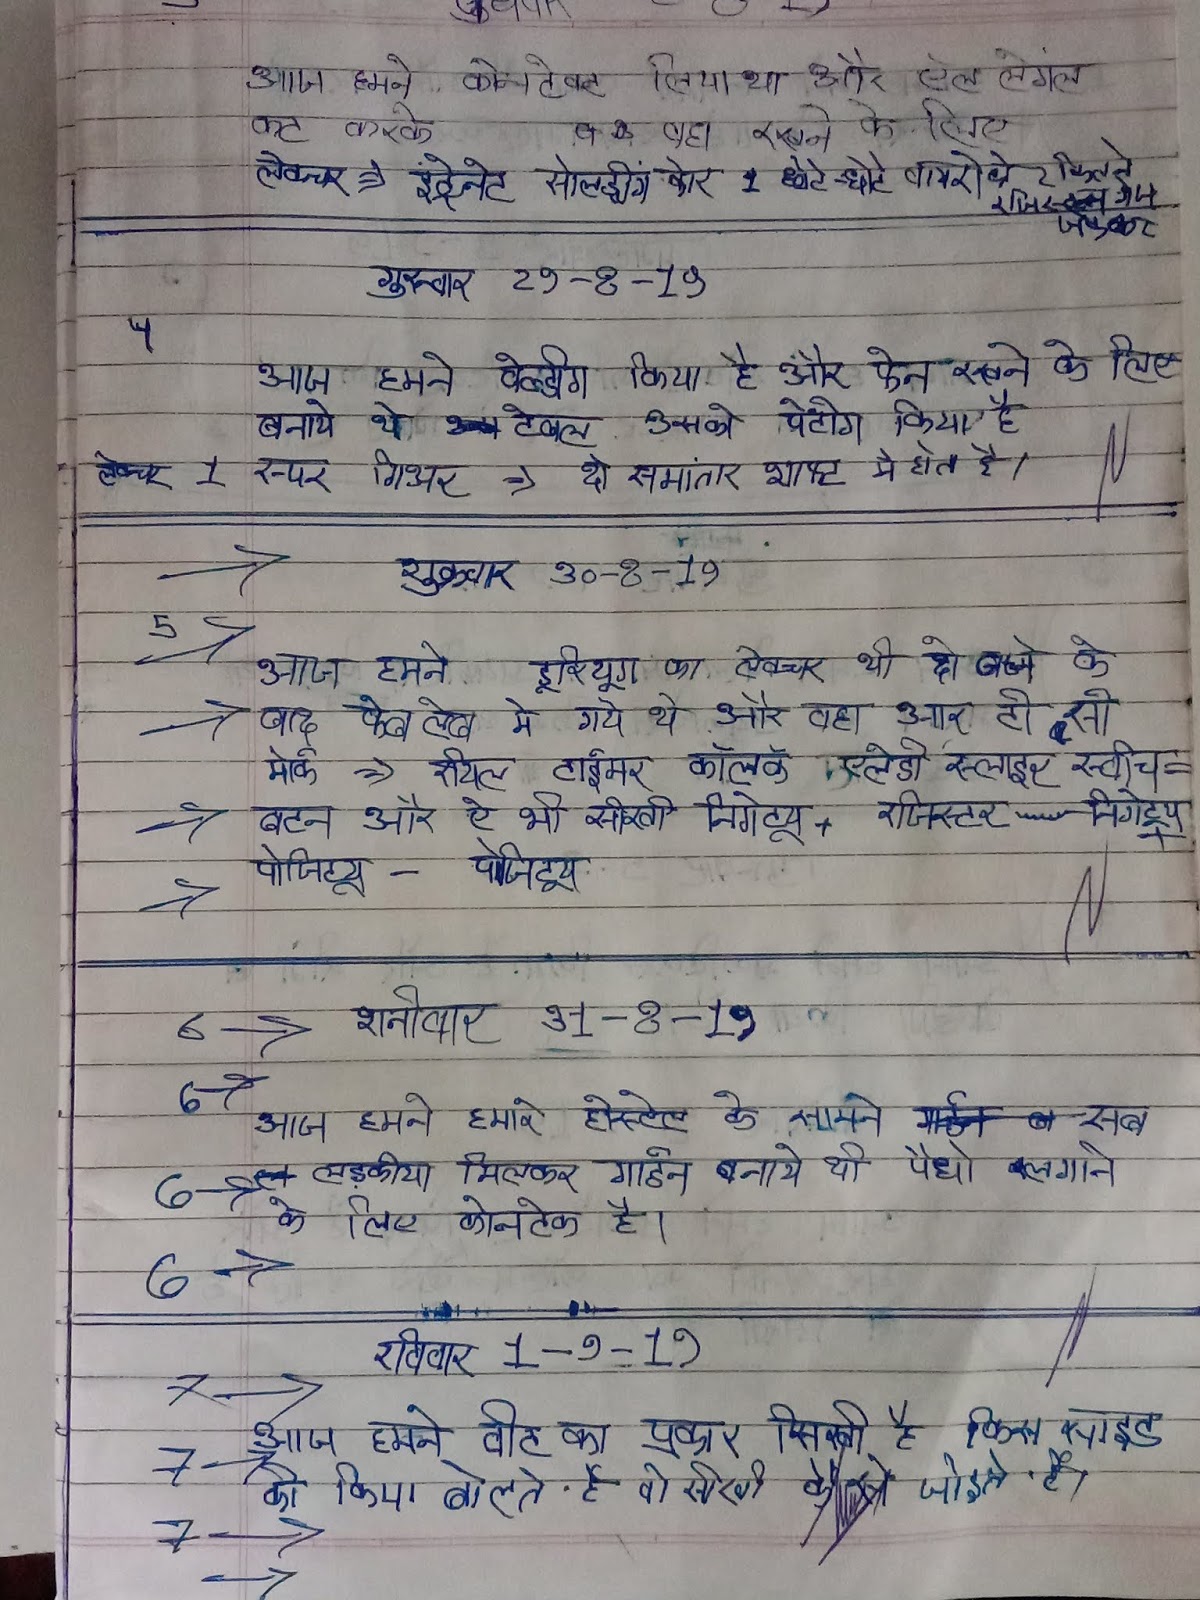 आज हमने कोनटेक्ट लिया था और एल लेंगल
कट करके वहा रखने के लिए
लेक्चर ⇒ सोलड्रींग कोर 1 छोटे-छोटे वायरो
गुरुवार 29-8-19
4
आज हमने वेल्डींग किया है और फेन रखने के लिए
बनाये थे टेबल उसको पेंटींग किया है
लेक्चर 1 स्पर गिअर ⇒ दो समांतार शाफ्ट मे होत है।
→ शुक्रवार 30-8-19
5 →
आज हमने का लेक्चर थी दो बजे के
→ बाद फेब लेब मे गये थे और वहा आर टी सी
मार्क ⇒ रीयल टाईमर कॉलकॅ एलेडी स्लाइर स्वीच=
→ बटन और ऐ भी सीखी निगेट्यु + रजिस्टर निगेट्यु +
→ पोजिट्यु - पोजिट्यु
6 → शनीवार 31-8-19
6 →
आज हमने हमारे होस्टेल के सामने गार्डन ब सब
6 → लड़कीया मिलकर गार्डन बनाये थी पैधो लगाने
के लिए कोनटेक है।
6 →
रविवार 1-9-19
7 →
आज हमने वीट का प्रकार सिखी है किस साइड
7 → को किया बोलते है वो सीखी जोड़ते है।
7 →
→